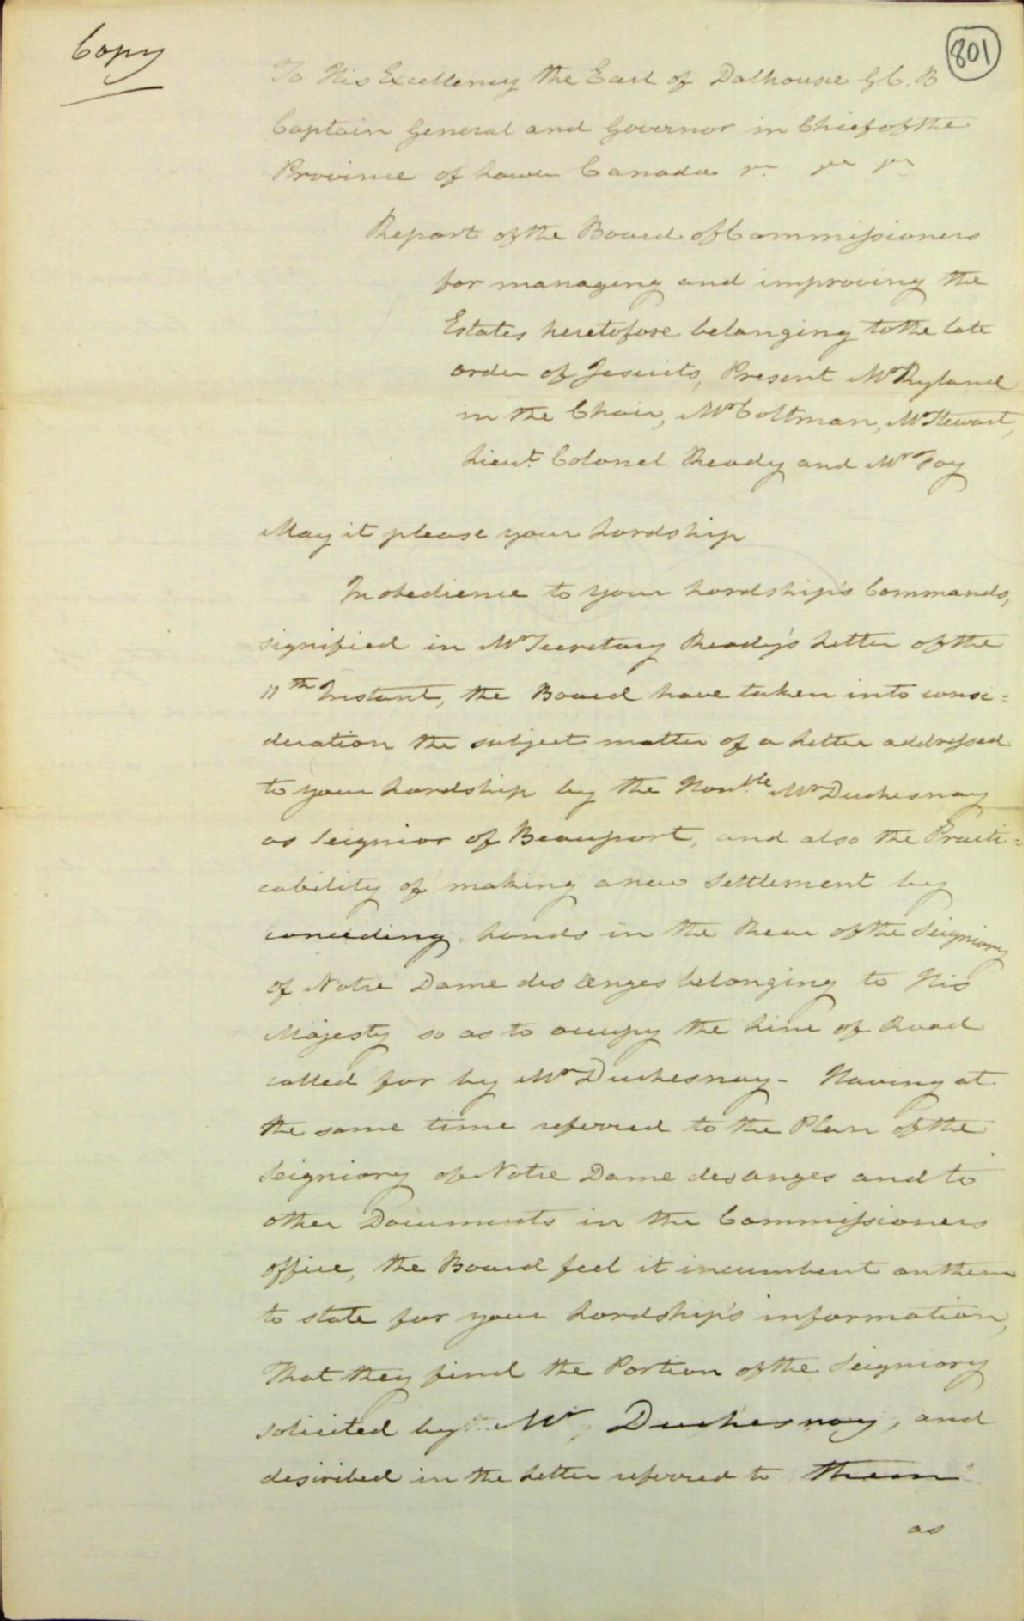 Copy
801
To His Excellency the Earl of Dalhousie G.C.B
Captain General and Governor in Chief of the
Province of Lower Canada &c &c &c
Report of the Board of Commissioners
for managing and improving the
Estates heretofore belonging to the late
order of Jesuits, Present Mr Ryland
in the Chair, Mr Coltman, Mr Stewart,
Lieut. Colonel Ready and Mr Foy
May it please your Lordship
In obedience to your Lordship's Commands,
signified in Mr Secretary Ready's Letter of the
11th Instant, the Board have taken into consi=
deration the subject matter of a Letter addressed
to your Lordship by the Honble Mr Duchesnay
as Seignior of Beauport, and also the Practi=
cability of making a new Settlement by
conceding Lands in the Rear of the Seigniory
of Notre Dame des Anges belonging to His
Majesty so as to occupy the Line of Road
called for by Mr Duchesnay - Having at
the same time referred to the Plan of the
Seigniory of Notre Dame des anges and to
other Documents in the Commissioners
office, the Board feel it incumbent on them
to state for your Lordship's information,
That they find the Portion of the Seigniory
solicited by Mr Duchesnay, and
described in the Letter referred to them
as